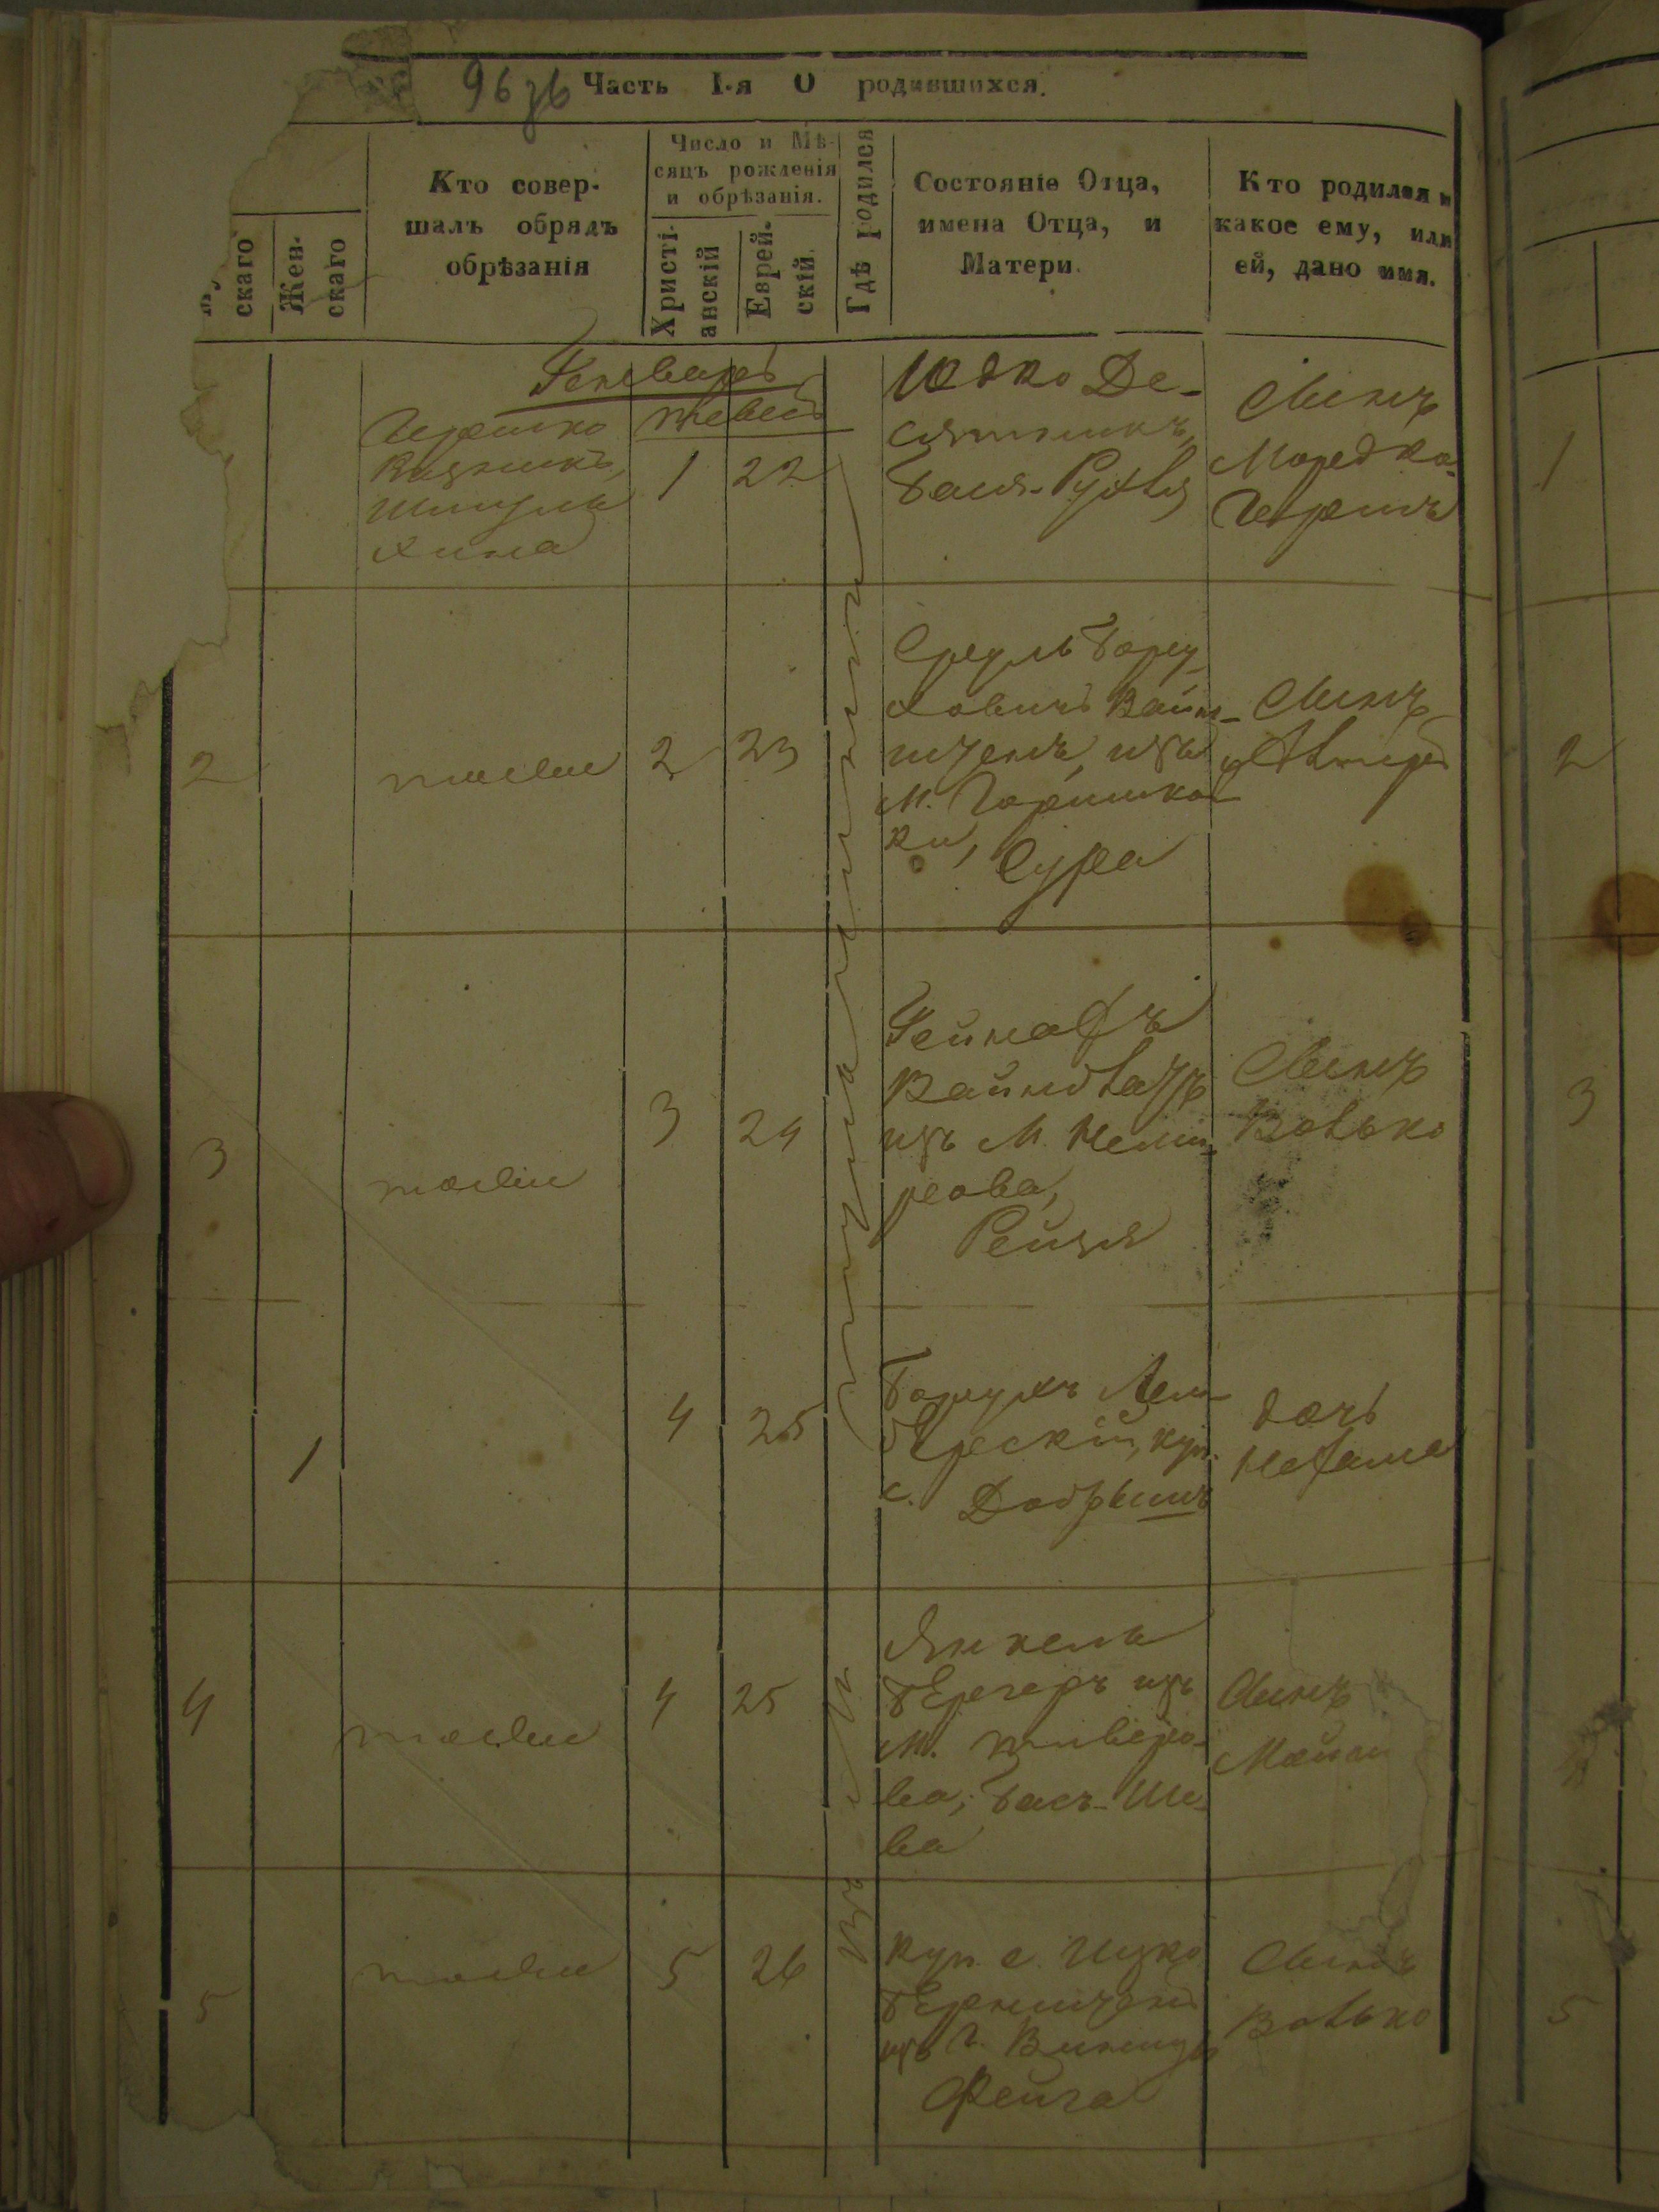 96 зв
Часть I-я О родившихся.
скаго
Жен-
скаго
Кто совер-
шалъ обрядъ
обрѣзанія
Число и Мѣ-
сяцъ рожденія
и обрѣзанія.
Христі-
анскій
Еврей-
скій.
Гдѣ родился
Состояніе Отца,
имена Отца, и
Матери.
Кто родился и
какое ему, или
ей, дано имя.
Генварь
Тевесъ
Гершко
Шмуль
1
22
Юдко Де-
сятникъ,
Бася-Рухля
Сынъ
Мордко-
Гершъ
1
2
тоже
2
23
Сруль Бору
ховичъ Вайн-
штенъ, изъ
м. Горишков
ки,
Сура
Сынъ
2
3
тоже
3
24
изъ М. Неми-
рова,
Рейзя
Сынъ
Волько
3
1
4
25
Борухъ Лем-
бергскій, куп.
с.
Добрышъ
дочь
Нехама
4
тоже
4
25
Янкель
Бергеръ изъ
м. Тиверо-
ва, Бась-Ше-
ва
Сынъ
5
тоже
5
26
куп. с. Ицко
Бернштенъ
изъ г. Винницы
Фейга
Сынъ
Волько
5